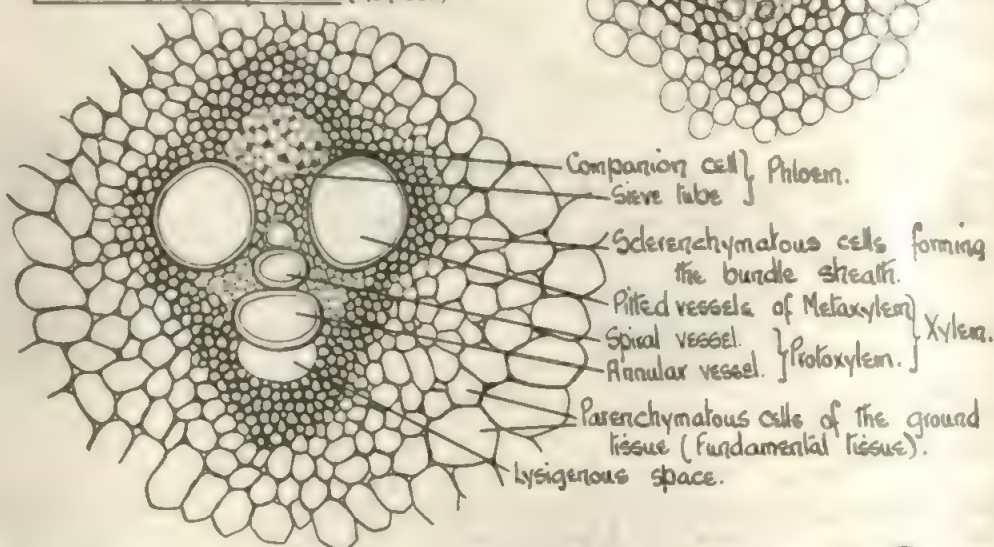 Companion cell } Phloem.
Sieve tube
Sclerenchymatous cells forming
the bundle sheath.
Pitted vessels of Metaxylem } Xylem.
Spiral vessel. } Protoxylem.
Annular vessel.
Parenchymatous cells of the ground
tissue (Fundamental tissue).
Lysigenous space.